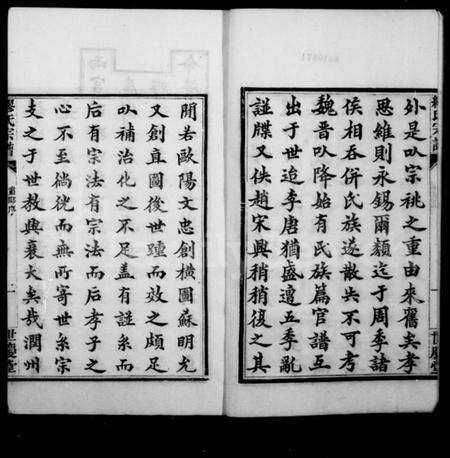 外是以宗祧之重由來舊矣孝
思維則永錫爾類迄于周季諸
侯相吞併氏族遂散失不可考
魏晋以降始有氏族篇官譜互
出于世迨李唐猶盛遭五季亂
諡牒又佚趙宋興稍稍復之其
間若歐陽文忠創橫圖蘇明允
又創直圖後世踵而效之頗足
以補治化之不足盖有註系而
后有宗法有宗法而后孝子之
心不至徜恍而無所寄世系宗
支之于世教興衰大矣哉潤州
繆氏宗譜
二